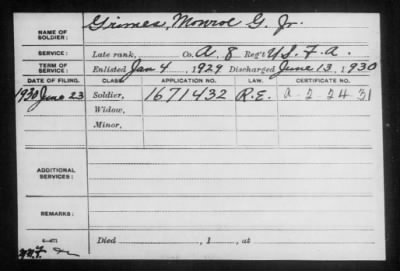 NAME OF SOLDIER: Grimes, Monroe G. Jr.
SERVICE: Late rank, Co. A, 8 Reg't U.S. F.A.
TERM OF SERVICE: Enlisted Jan 4, 1929 Discharged June 13, 1930
DATE OF FILING. CLASS. APPLICATION NO. LAW. CERTIFICATE NO.
1930 June 23 Soldier, 1671432 R.E. A-2-24-31
Widow,
Minor,
ADDITIONAL SERVICES:
REMARKS:
Died , 1 , at